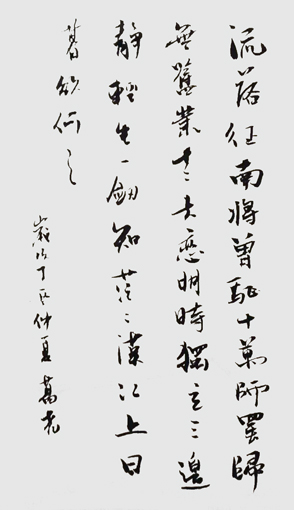 流落征南將曾駈十萬師罷歸
無舊業老去戀明時獨立三邊
靜輕生一劍知茫〻漢江上日
暮欲何之
歲次丁亥仲夏萬